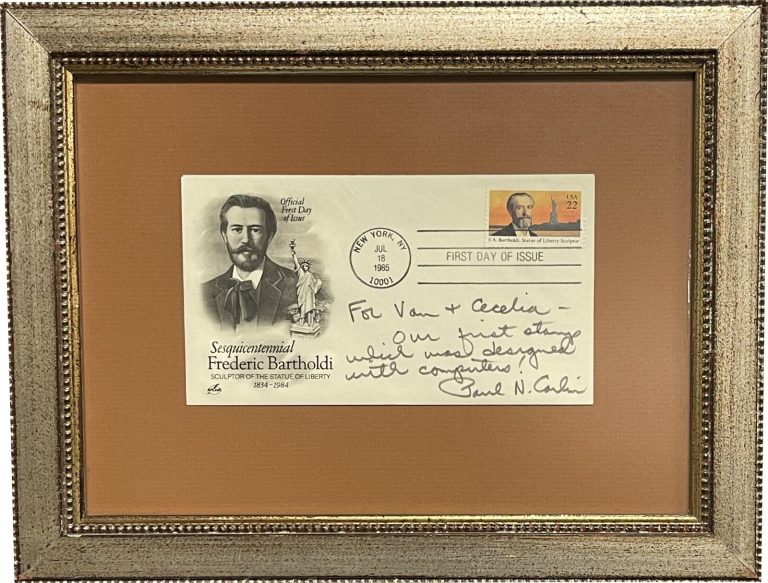 Official
First Day
of Issue
NEW YORK, NY
JUL
18
1985
10001
FIRST DAY OF ISSUE
USA
22
F.A. Bartholdi, Statue of Liberty Sculptor
For Van + Cecelia –
Our first stamp
which was designed
with computers!
Paul N. Carlin
Sesquicentennial
Frederic Bartholdi
SCULPTOR OF THE STATUE OF LIBERTY
1834–1984